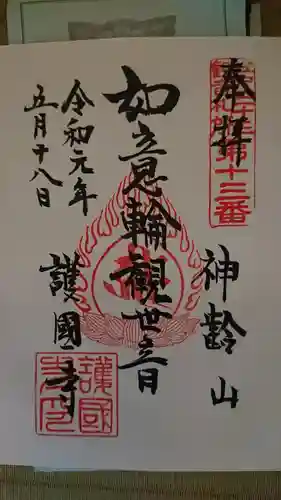 奉拝
第十三番
神齢山
如意輪観世音
令和元年
五月十八日
護國寺
護國